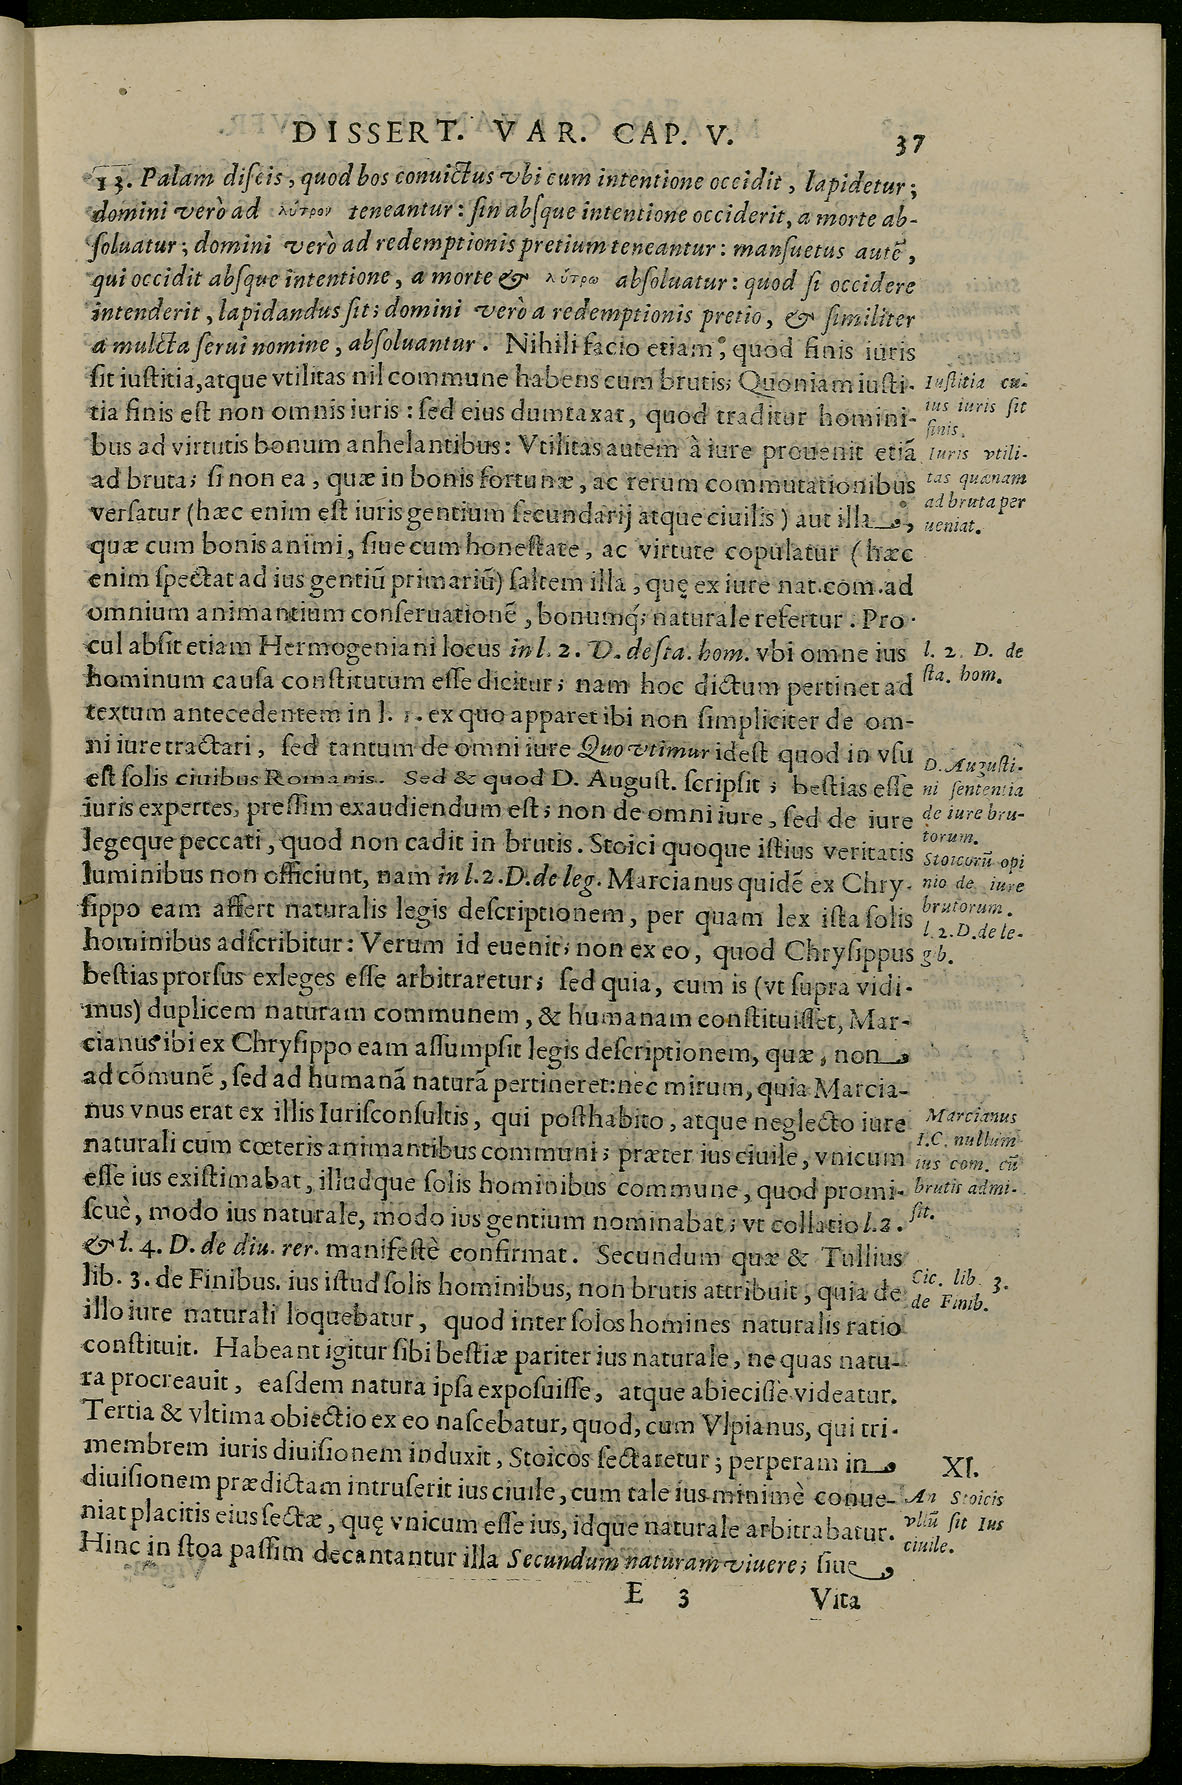 DISSERT. VAR. CAP. V. 37
13. Palam diſcis, quod bos conuictus vbi cum intentione occidit, lapidetur;
domini verò ad λύτρον teneantur: ſin abſque intentione occiderit, a morte ab-
ſoluatur; domini verò ad redemptionis pretium teneantur: manſuetus autẽ,
qui occidit abſque intentione, a morte & λύτρω abſoluatur: quod ſi occidere
intenderit, lapidandus ſit; domini verò a redemptionis pretio, & ſimiliter
a mulcta ſerui nomine, abſoluantur. Nihili facio etiam, quod finis iuris
ſit iuſtitia, atque vtilitas nil commune habens cum brutis; Quoniam iuſti-
tia finis eſt non omnis iuris: ſed eius dumtaxat, quod traditur homini-
bus ad virtutis bonum anhelantibus: Vtilitas autem à iure prouenit etiã
ad bruta; ſi non ea, quæ in bonis fortunæ, ac rerum commutationibus
verſatur (hæc enim eſt iuris gentium ſecundarij atque ciuilis) aut illa,
quæ cum bonis animi, ſiue cum honeſtate, ac virtute copulatur (hæc
enim ſpectat ad ius gentiũ primariũ) ſaltem illa, quę ex iure nat. com. ad
omnium animantium conſeruationẽ, bonumq́; naturale refertur. Pro-
cul abſit etiam Hermogeniani locus in l. 2. D. de ſta. hom. vbi omne ius
hominum cauſa conſtitutum eſſe dicitur; nam hoc dictum pertinet ad
textum antecedentem in l. 1. ex quo apparet ibi non ſimpliciter de om-
ni iure tractari, ſed tantum de omni iure Quo vtimur ideſt quod in vſu
eſt ſolis ciuibus Romanis. Sed & quod D. Auguſt. ſcripſit; beſtias eſſe
iuris expertes, preſſim exaudiendum eſt; non de omni iure, ſed de iure
legeque peccati, quod non cadit in brutis. Stoici quoque iſtius veritatis
luminibus non officiunt, nam in l. 2. D. de leg. Marcianus quidẽ ex Chry-
ſippo eam affert naturalis legis deſcriptionem, per quam lex iſta ſolis
hominibus adſcribitur: Verum id euenit; non ex eo, quod Chryſippus
beſtias prorſus exleges eſſe arbitraretur; ſed quia, cum is (vt ſupra vidi-
mus) duplicem naturam communem, & humanam conſtituiſſet, Mar-
cianus ibi ex Chryſippo eam aſſumpſit legis deſcriptionem, quæ, non
ad cõmunẽ, ſed ad humanã naturã pertineret: nec mirum, quia Marcia-
nus vnus erat ex illis Iuriſconſultis, qui poſthabito, atque neglecto iure
naturali cum cœteris animantibus communi; præter ius ciuile, vnicum
eſſe ius exiſtimabat, illudque ſolis hominibus commune, quod promi-
ſcuè, modo ius naturale, modo ius gentium nominabat; vt collatio l. 2.
& l. 4. D. de diu. rer. manifeſtè confirmat. Secundum quæ & Tullius
lib. 3. de Finibus. ius iſtud ſolis hominibus, non brutis attribuit, quia de
illo iure naturali loquebatur, quod inter ſolos homines naturalis ratio
conſtituit. Habeant igitur ſibi beſtiæ pariter ius naturale, ne quas natu-
ra procreauit, eaſdem natura ipſa expoſuiſſe, atque abieciſſe videatur.
Tertia & vltima obiectio ex eo naſcebatur, quod, cum Vlpianus, qui tri-
membrem iuris diuiſionem induxit, Stoicos ſectaretur; perperam in
diuiſionem prædictam intruſerit ius ciuile, cum tale ius minimè conue-
niat placitis eius ſectæ, quę vnicum eſſe ius, idque naturale arbitrabatur.
Hinc in ſtoa paſſim decantantur illa Secundum naturam viuere; ſiue
E 3 Vita
Iuſtitia cu-
ius iuris ſit
finis.
Iuris vtili-
tas quænam
ad bruta per
ueniat.
l. 2. D. de
ſta. hom.
D. Auguſti-
ni ſententia
de iure bru-
torum.
Stoicorũ opi
nio de iure
brutorum.
l. 2. D. de le-
gb.
Marcianus
I.C. nullum
ius com. cũ
brutis admi-
ſit.
Cic. lib. 3.
de Finib.
XI.
An Stoicis
vllũ ſit Ius
ciuile.